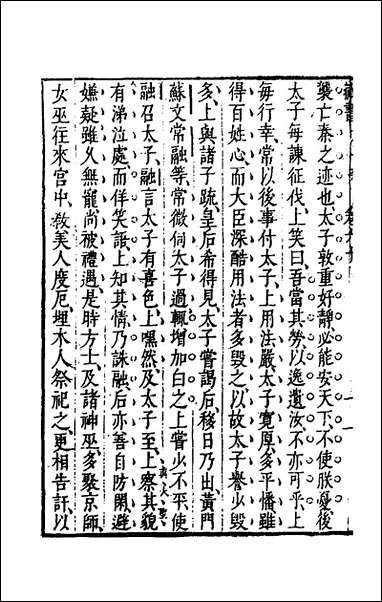 襲亡秦之迹也太子敦重好靜必能安天下不使朕憂後
太子每諫征伐上笑曰吾當其勞以逸遺汝不亦可乎上
每行幸常以後事付太子上用法嚴太子寬厚多平幡雖
得百姓心而大臣深酷用法者多毀之以故太子譽少毀
多上與諸子疏皇后希得見太子嘗謁后移日乃出黃門
蘇文常融等常微伺太子過輒增加白之上嘗少不平使
融召太子融言太子有喜色上嘿然及太子至上察其貌
真大聖
有涕泣處而佯笑語上知其情乃誅融后亦善自防閑避
嫌疑雖久無寵尚被禮遇是時方士及諸神巫多聚京師
女巫往來宮中教美人度厄埋木人祭祀之更相告訐以